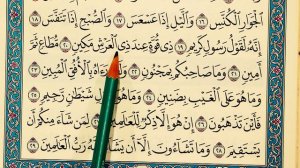 ٱلْجَوَارِ ٱلْكُنَّسِ ١٦ وَٱلَّيْلِ إِذَا عَسْعَسَ ١٧ وَٱلصُّبْحِ إِذَا تَنَفَّسَ ١٨
إِنَّهُۥ لَقَوْلُ رَسُولٍ كَرِيمٍ ١٩ ذِى قُوَّةٍ عِندَ ذِى ٱلْعَرْشِ مَكِينٍ ٢٠ مُّطَاعٍ ثَمَّ
أَمِينٍ ٢١ وَمَا صَاحِبُكُم بِمَجْنُونٍ ٢٢ رَءَاهُ بِٱلْأُفُقِ ٱلْمُبِينِ ٢٣
وَمَا هُوَ عَلَى ٱلْغَيْبِ بِضَنِينٍ ٢٤ وَمَا هُوَ بِقَوْلِ شَيْطَٰنٍ رَّجِيمٍ ٢٥
فَأَيْنَ تَذْهَبُونَ ٢٦ إِنْ هُوَ إِلَّا ذِكْرٌ لِّلْعَٰلَمِينَ ٢٧ لِمَن شَآءَ مِنكُمْ أَن
يَسْتَقِيمَ ٢٨ وَمَا تَشَآءُونَ إِلَّآ أَن يَشَآءَ ٱللَّهُ رَبُّ ٱلْعَٰلَمِينَ ٢٩